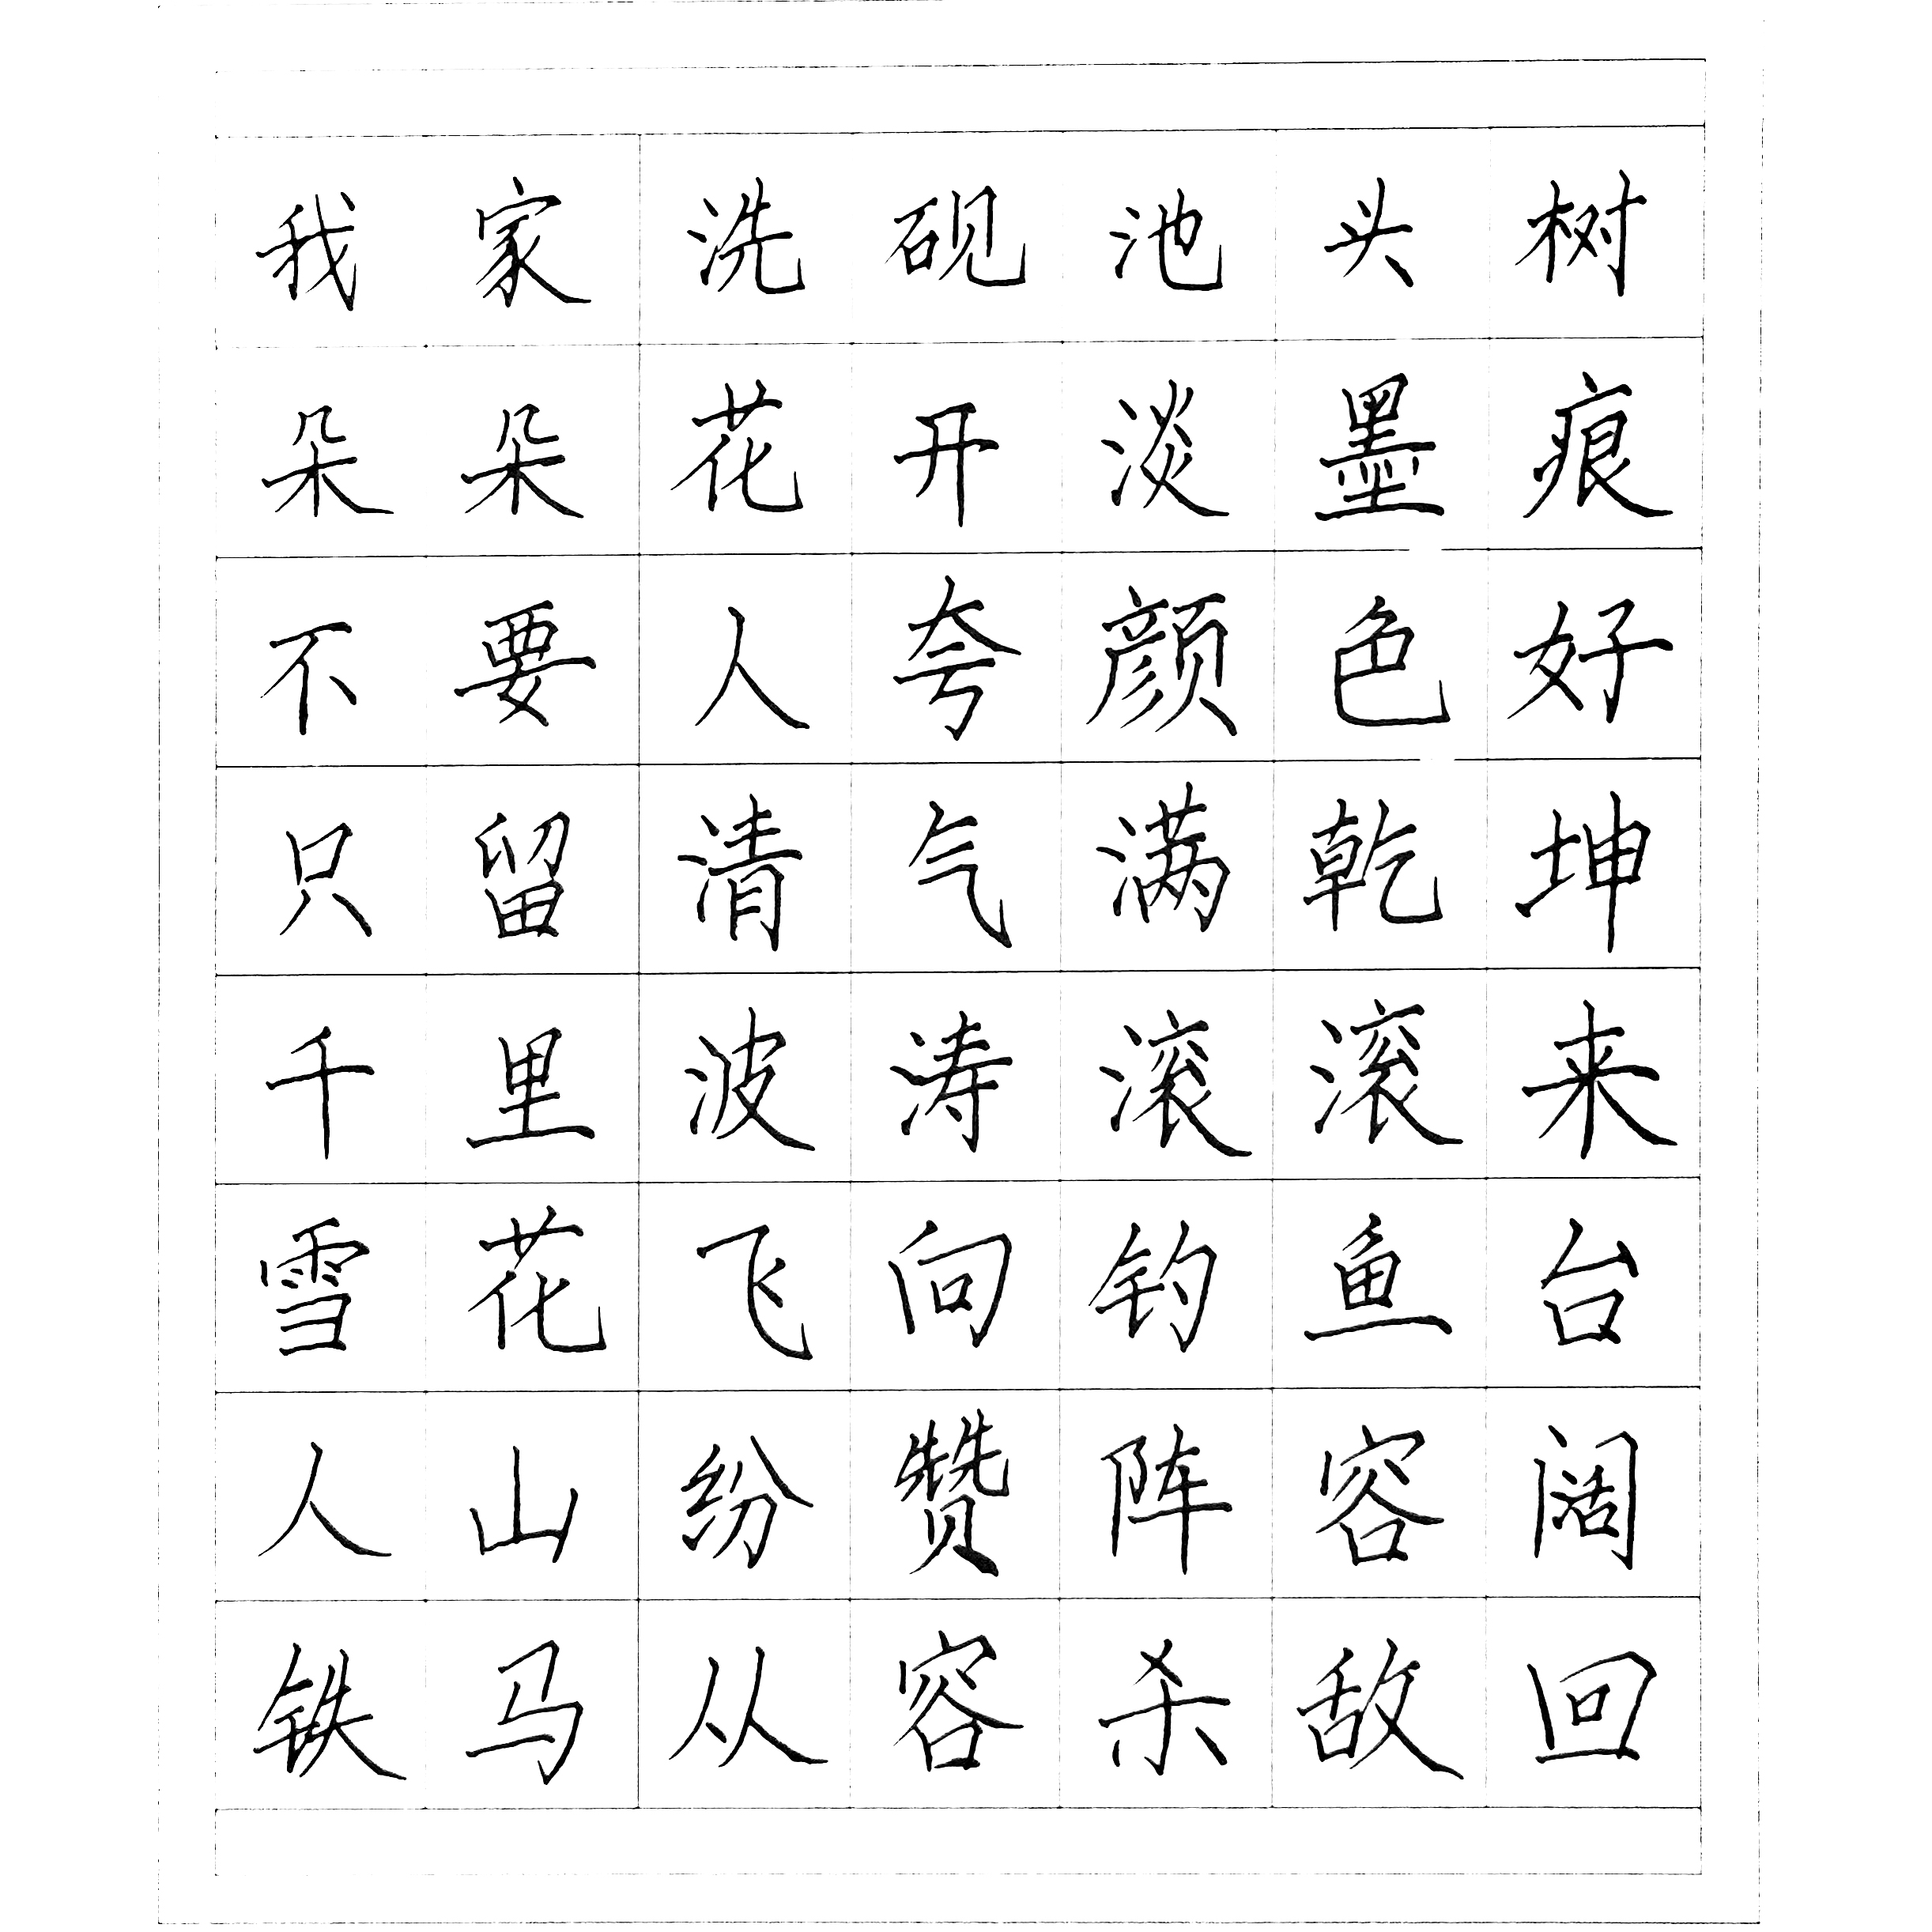 我家洗砚池头树
朵朵花开淡墨痕
不要人夸颜色好
只留清气满乾坤
千里波涛滚滚来
雪花飞向钓鱼台
人山纷赞阵容阔
铁马从容杀敌回